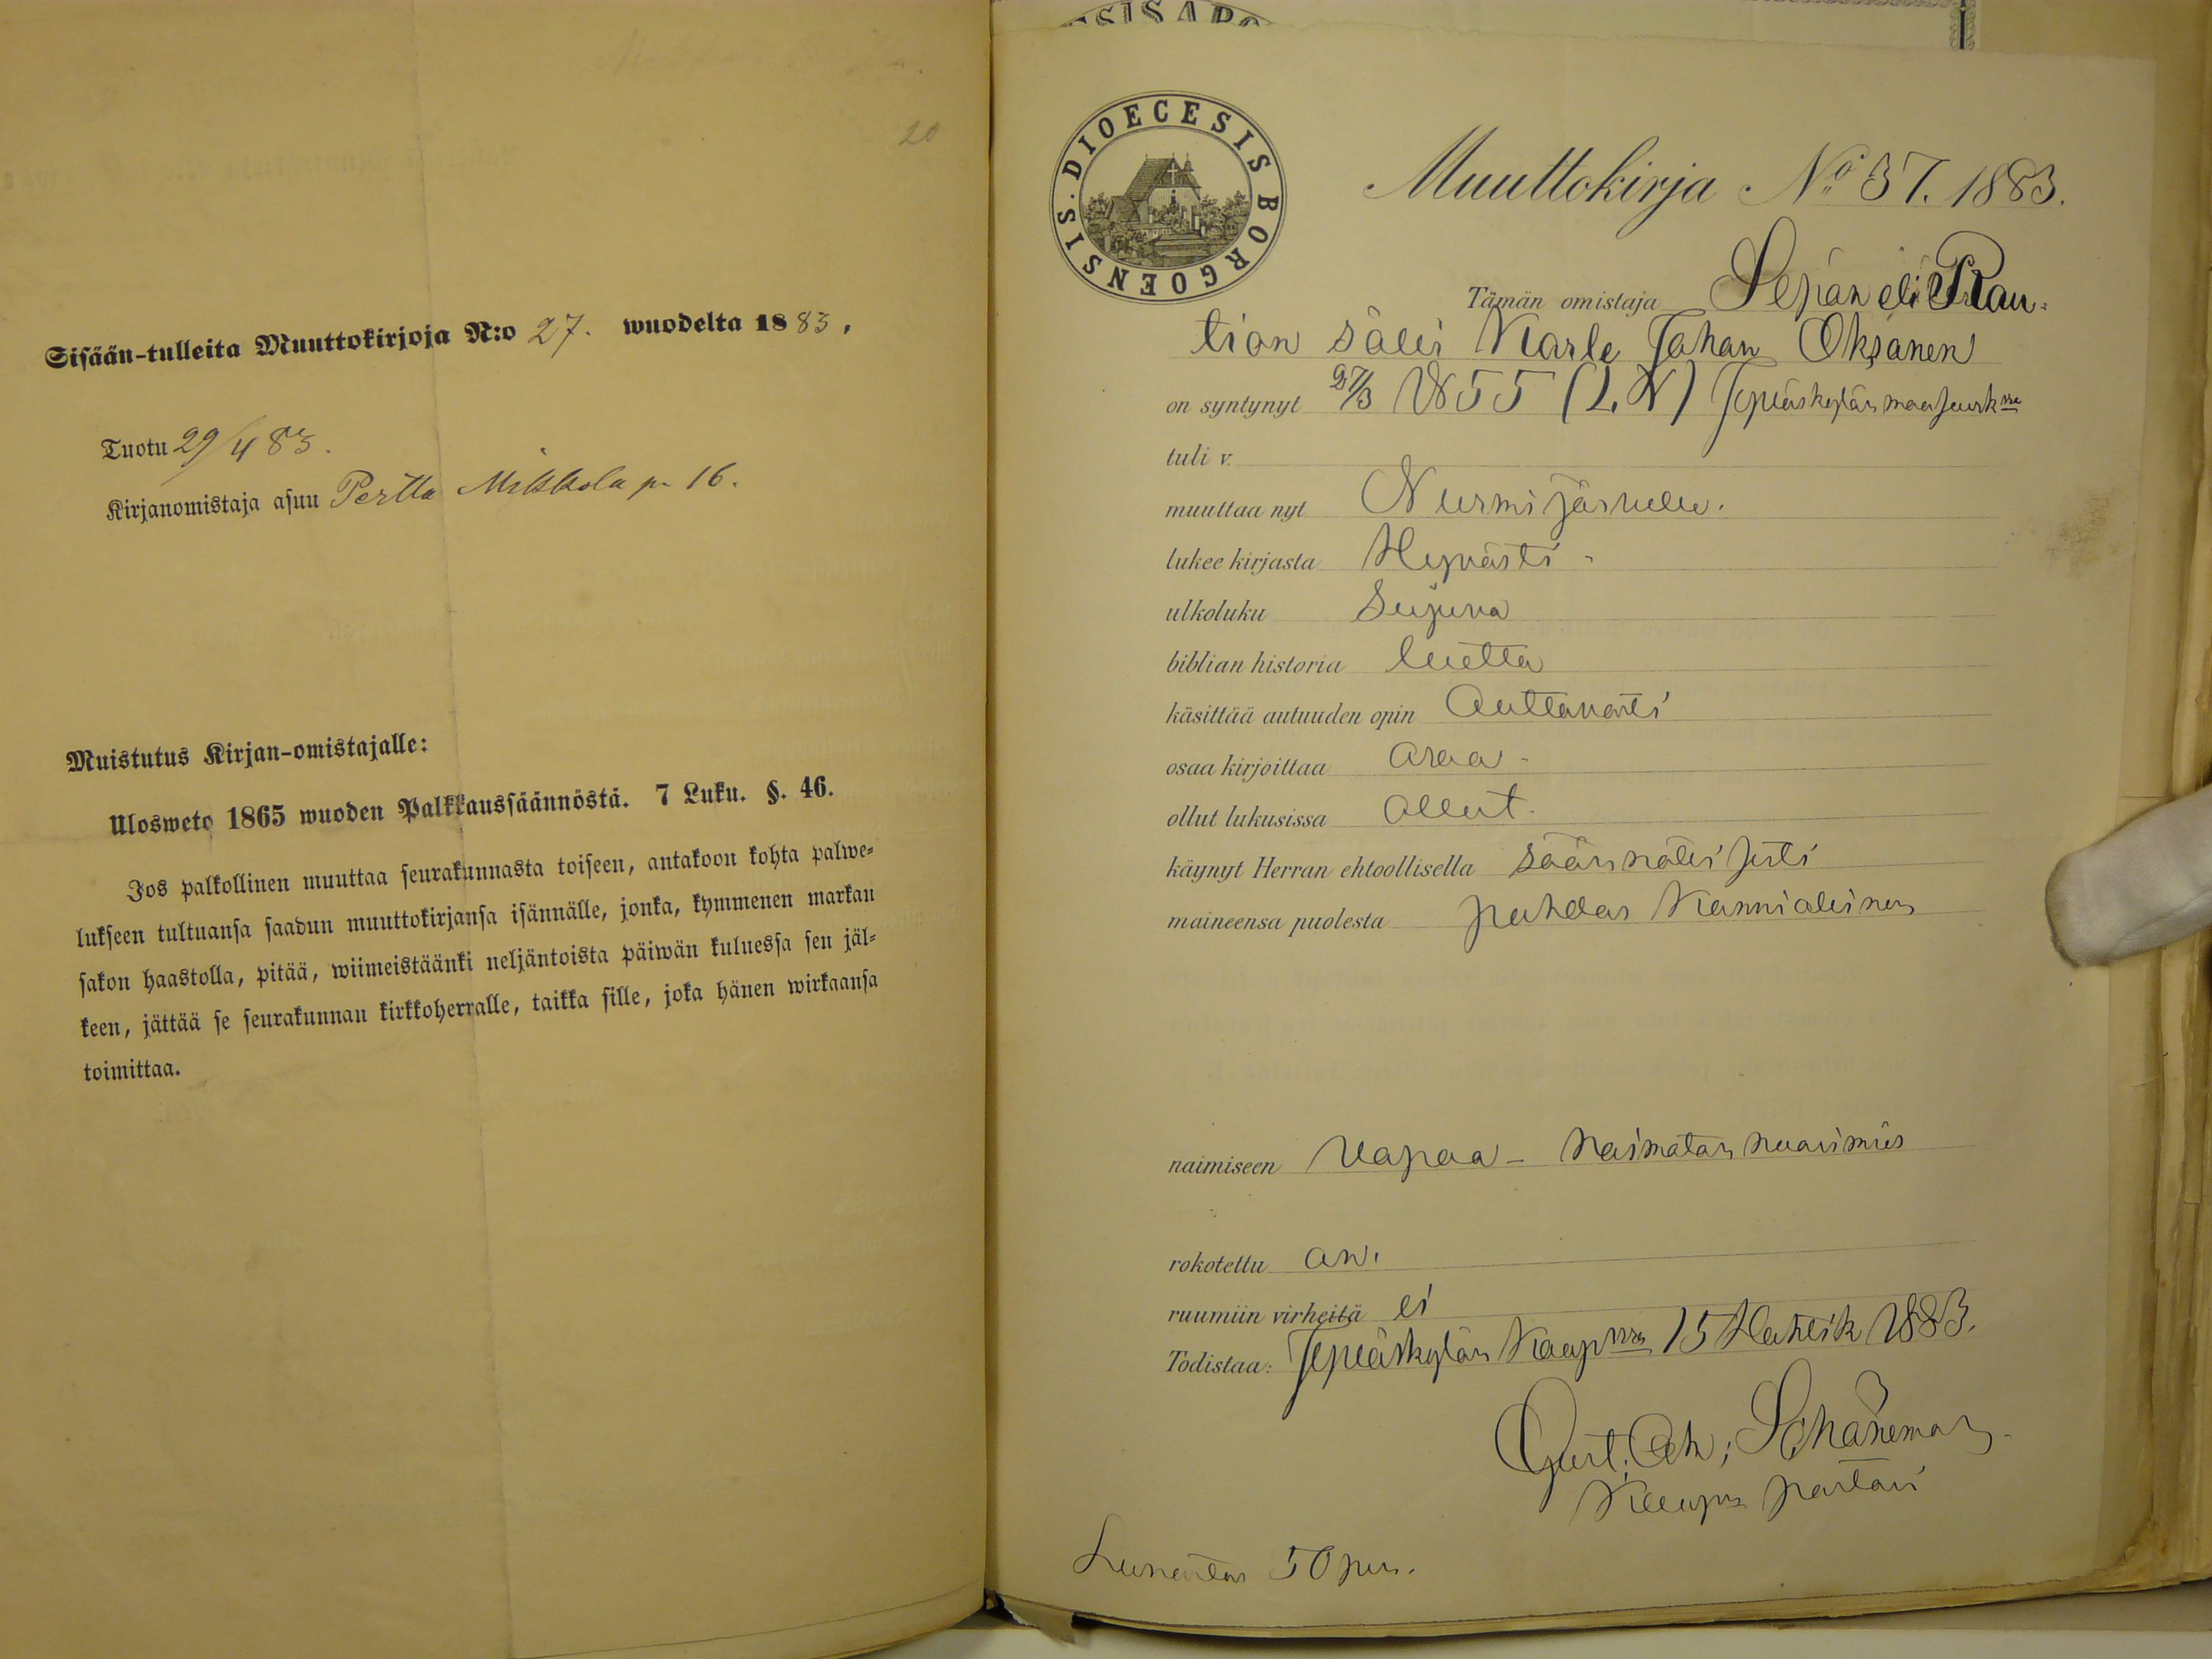 20
Sisään-tulleita Muuttokirjoja N:o 27. wuodelta 1883.
Tuotu 29/4 83.
Kirjanomistaja asuu Perttu Mikkola p. 16.
Muistutus Kirjan-omistajalle:
Ulosweto 1865 wuoden Palkkaussäännöstä. 7 Luku. §. 46.
Jos palkollinen muuttaa seurakunnasta toiseen, antakoon kohta palwe-
lukseen tultuansa saadun muuttokirjansa isännälle, jonka, kymmenen markan
sakon haastolla, pitää, wiimeistäänki neljäntoista päiwän kuluessa sen jäl-
keen, jättää se seurakunnan kirkkoherralle, taikka sille, joka hänen wirkaansa
toimittaa.
DIOECESIS BORGOENSIS.
Muuttokirja No 37. 1883.
Tämän omistaja Sepän eli Rau-
tion sälli Karle Johan Oksanen
on syntynyt 27/3 1855 (L. K) Jyväskylän maaseurk
tuli v.
muuttaa nyt Nurmijärvelle.
lukee kirjasta Hyvästi.
ulkoluku Sujuva
biblian historia luettu
käsittää autuuden opin Auttavasti
osaa kirjoittaa osaa
ollut lukusissa Ollut.
käynyt Herran ehtoollisella säännöllisesti
maineensa puolesta puhdas Kunniallinen
naimiseen Vapaa - Naimaton nuorimies
rokotettu on.
ruumiin virheitä ei
Todistaa: Jyväskylän Kaup 15 Huhtik 1883.
Gust. Ad. Schöneman
Kaup pastori
Lunastus 50 pen.